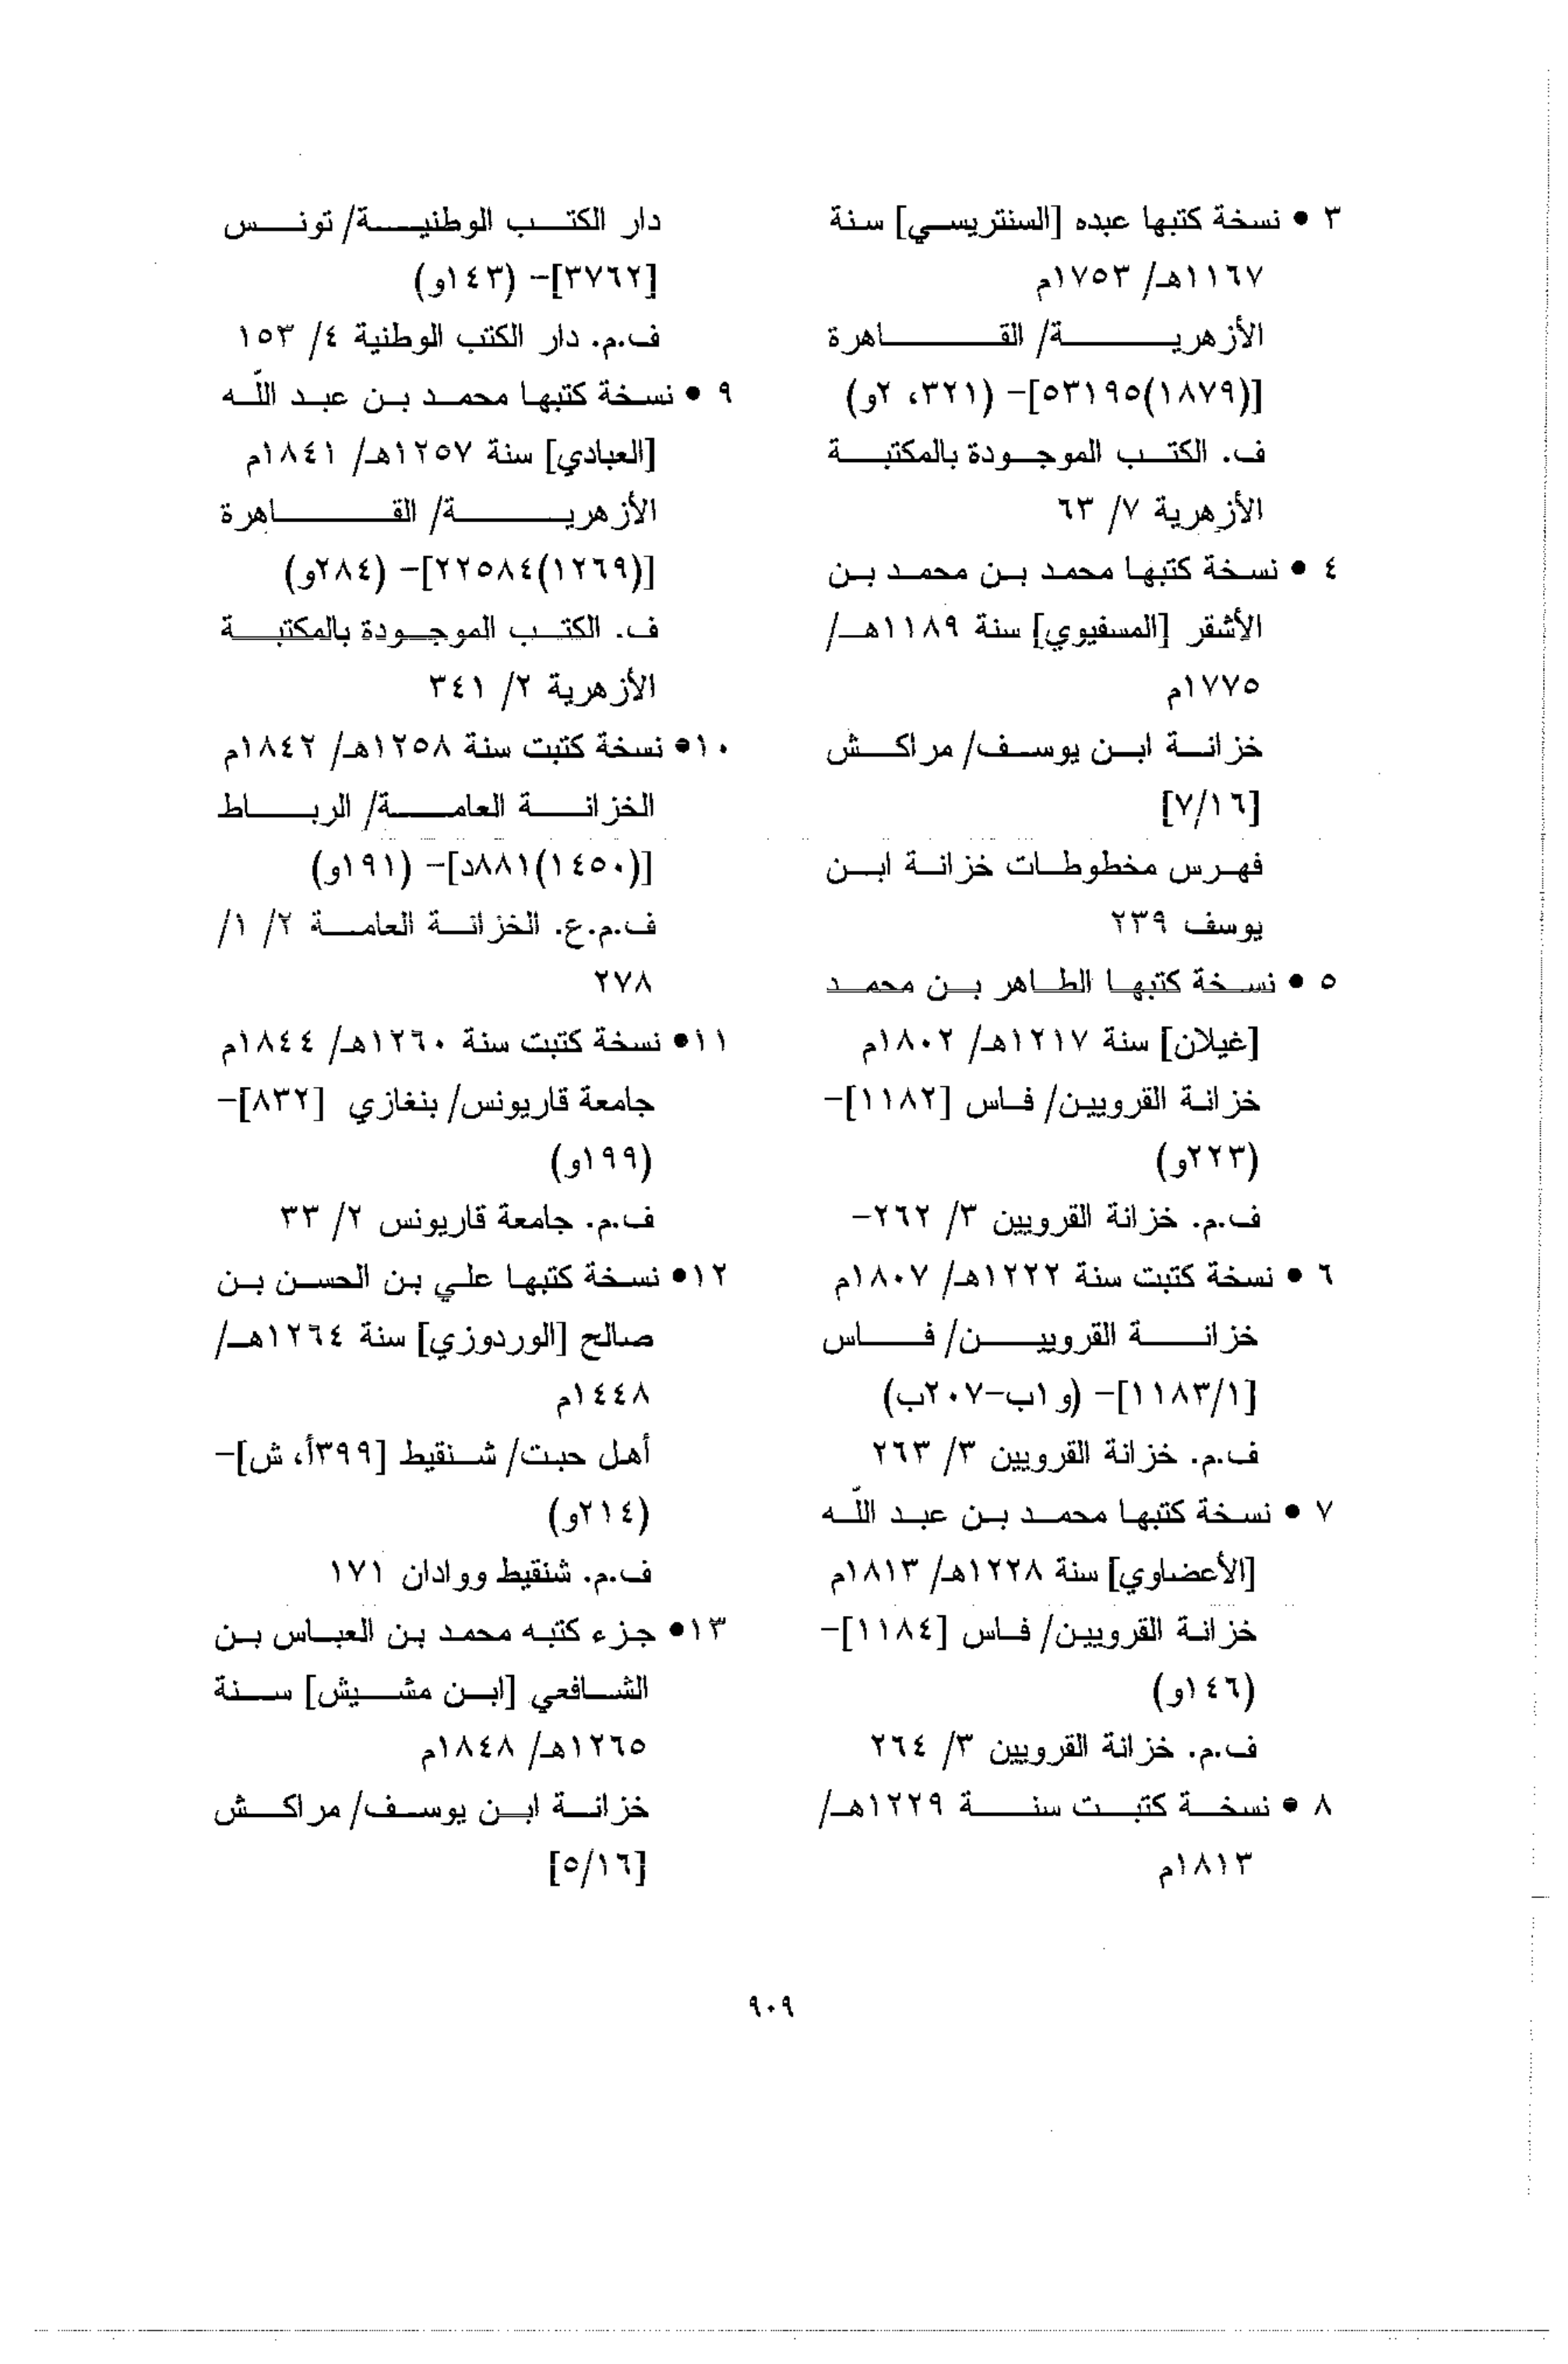 ٣ • نسخة كتبها عبده [السنتريسي] سنة
١١٦٧هـ/ ١٧٥٣م
الأزهرية/ القاهرة
[(١٨٧٩)٥٣١٩٥]- (٣٢١، ٢و)
ف. الكتب الموجودة بالمكتبة
الأزهرية ٧/ ٦٣
٤ • نسخة كتبها محمد بن محمد بن
الأشقر [المسفيوي] سنة ١١٨٩هـ/
١٧٧٥م
خزانة ابن يوسف/ مراكش
[٧/١٦]
فهرس مخطوطات خزانة ابن
يوسف ٢٣٩
٥ • نسخة كتبها الطاهر بن محمد
[غيلان] سنة ١٢١٧هـ/ ١٨٠٢م
خزانة القرويين/ فاس [١١٨٢]-
(٢٢٣و)
ف.م. خزانة القرويين ٣/ ٢٦٢-
٦ • نسخة كتبت سنة ١٢٢٢هـ/ ١٨٠٧م
خزانة القرويين/ فاس
[١١٨٣/١]- (و١ب-٢٠٧ب)
ف.م. خزانة القرويين ٣/ ٢٦٣
٧ • نسخة كتبها محمد بن عبد اللّه
[الأعضاوي] سنة ١٢٢٨هـ/ ١٨١٣م
خزانة القرويين/ فاس [١١٨٤]-
(١٤٦و)
ف.م. خزانة القرويين ٣/ ٢٦٤
٨ • نسخة كتبت سنة ١٢٢٩هـ/
١٨١٣م
دار الكتب الوطنية/ تونس
[٣٧٦٢]- (١٤٣و)
ف.م. دار الكتب الوطنية ٤/ ١٥٣
٩ • نسخة كتبها محمد بن عبد اللّه
[العبادي] سنة ١٢٥٧هـ/ ١٨٤١م
الأزهرية/ القاهرة
[(١٢٦٩)٢٢٥٨٤]- (٢٨٤و)
ف. الكتب الموجودة بالمكتبة
الأزهرية ٢/ ٣٤١
١٠• نسخة كتبت سنة ١٢٥٨هـ/ ١٨٤٢م
الخزانة العامة/ الرباط
[(١٤٥٠)٨٨١د]- (١٩١و)
ف.م.ع. الخزانة العامة ٢/ ١/
٢٧٨
١١• نسخة كتبت سنة ١٢٦٠هـ/ ١٨٤٤م
جامعة قاريونس/ بنغازي [٨٣٢]-
(١٩٩و)
ف.م. جامعة قاريونس ٢/ ٣٣
١٢• نسخة كتبها علي بن الحسن بن
صالح [الوردوزي] سنة ١٢٦٤هـ/
١٤٤٨م
أهل حبت/ شنقيط [٣٩٩أ، ش]-
(٢١٤و)
ف.م. شنقيط ووادان ١٧١
١٣• جزء كتبه محمد بن العباس بن
الشافعي [ابن مشيش] سنة
١٢٦٥هـ/ ١٨٤٨م
خزانة ابن يوسف/ مراكش
[٥/١٦]
٩٠٩